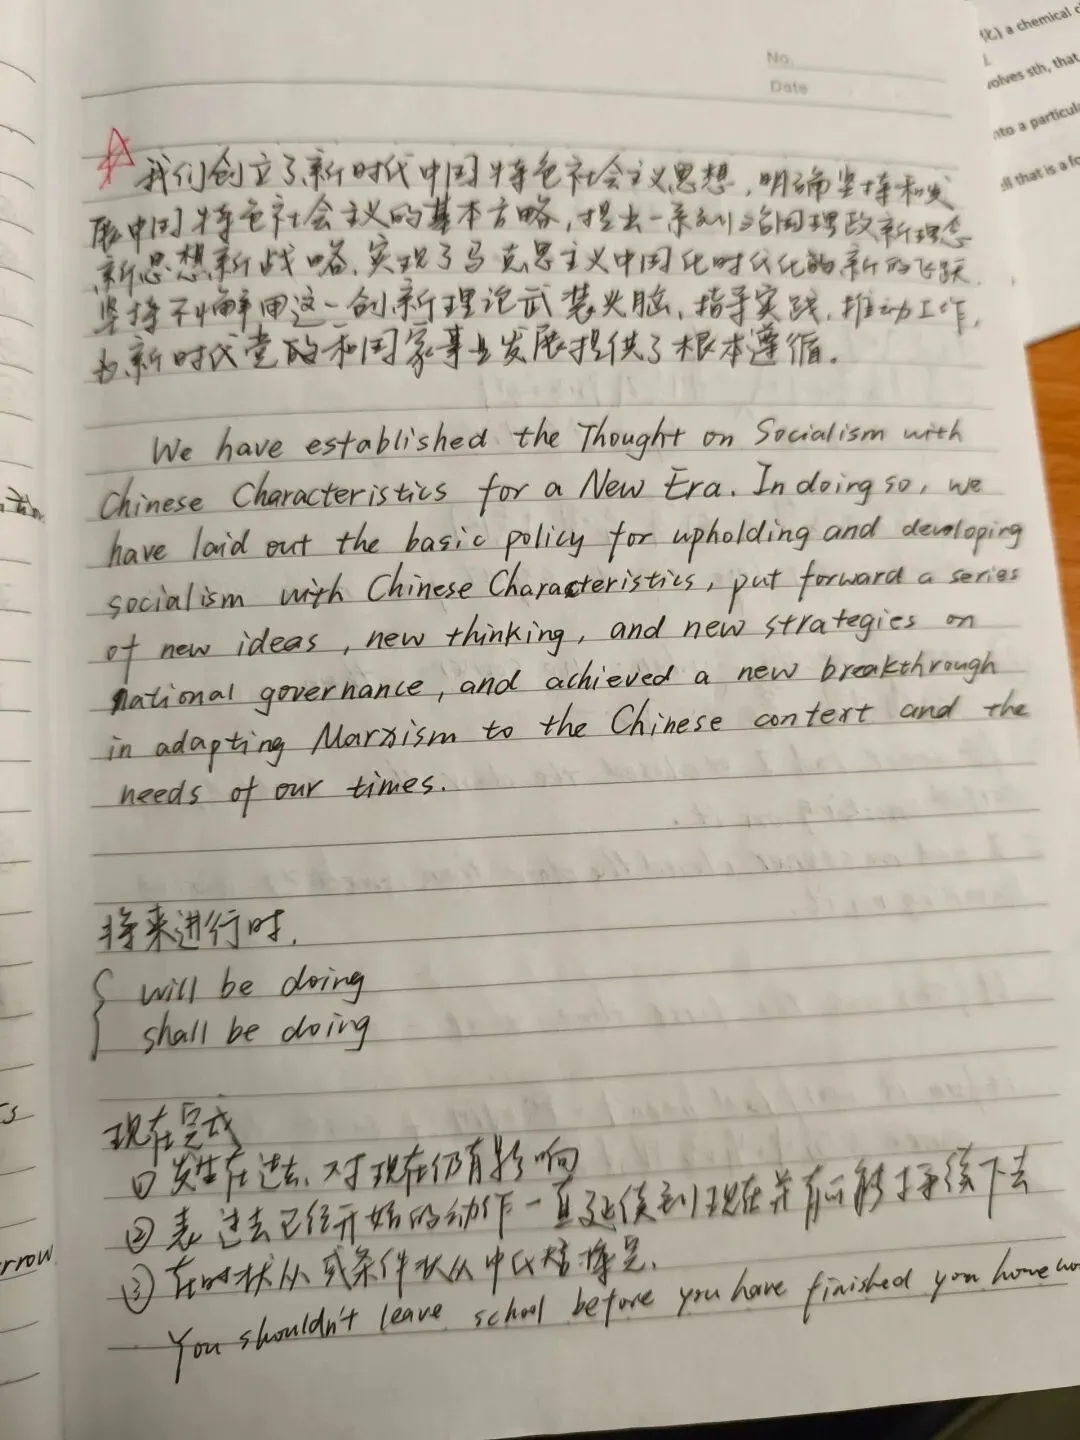 No.
Date
我们创立了新时代中国特色社会主义思想,明确坚持和发
展中国特色社会主义的基本方略,提出一系列治国理政新理念
新思想新战略,实现了马克思主义中国化时代化的新的飞跃,
坚持不懈用这一创新理论武装头脑,指导实践,推动工作,
为新时代党的和国家事业发展提供了根本遵循。
We have established the Thought on Socialism with
Chinese Characteristics for a New Era. In doing so, we
have laid out the basic policy for upholding and developing
socialism with Chinese Characteristics, put forward a series
of new ideas, new thinking, and new strategies on
national governance, and achieved a new breakthrough
in adapting Marxism to the Chinese context and the
needs of our times.
将来进行时.
will be doing
shall be doing
现在完成
① 发生在过去、对现在仍有影响
② 表过去已经开始的动作一直延续到现在并有可能持续下去
③ 在时状从或条件状从中代替将完.
You shouldn't leave school before you have finished you home
a chemical
volves sth, that
nto a particul
ll that is a fo
rrow